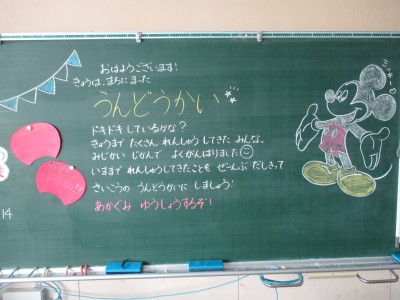 おはようございます!
きょうは、まちにまった
うんどうかい
ドキドキしているかな?
きょうまで たくさん れんしゅう してきた みんな。
みじかい じかんで よくがんばりました
いままで れんしゅうしてきたことを ぜーんぶ だしきって
さいこうの うんどうかいに しましょう!
あかぐみ ゆうしょうするぞ!
ミッキー
14